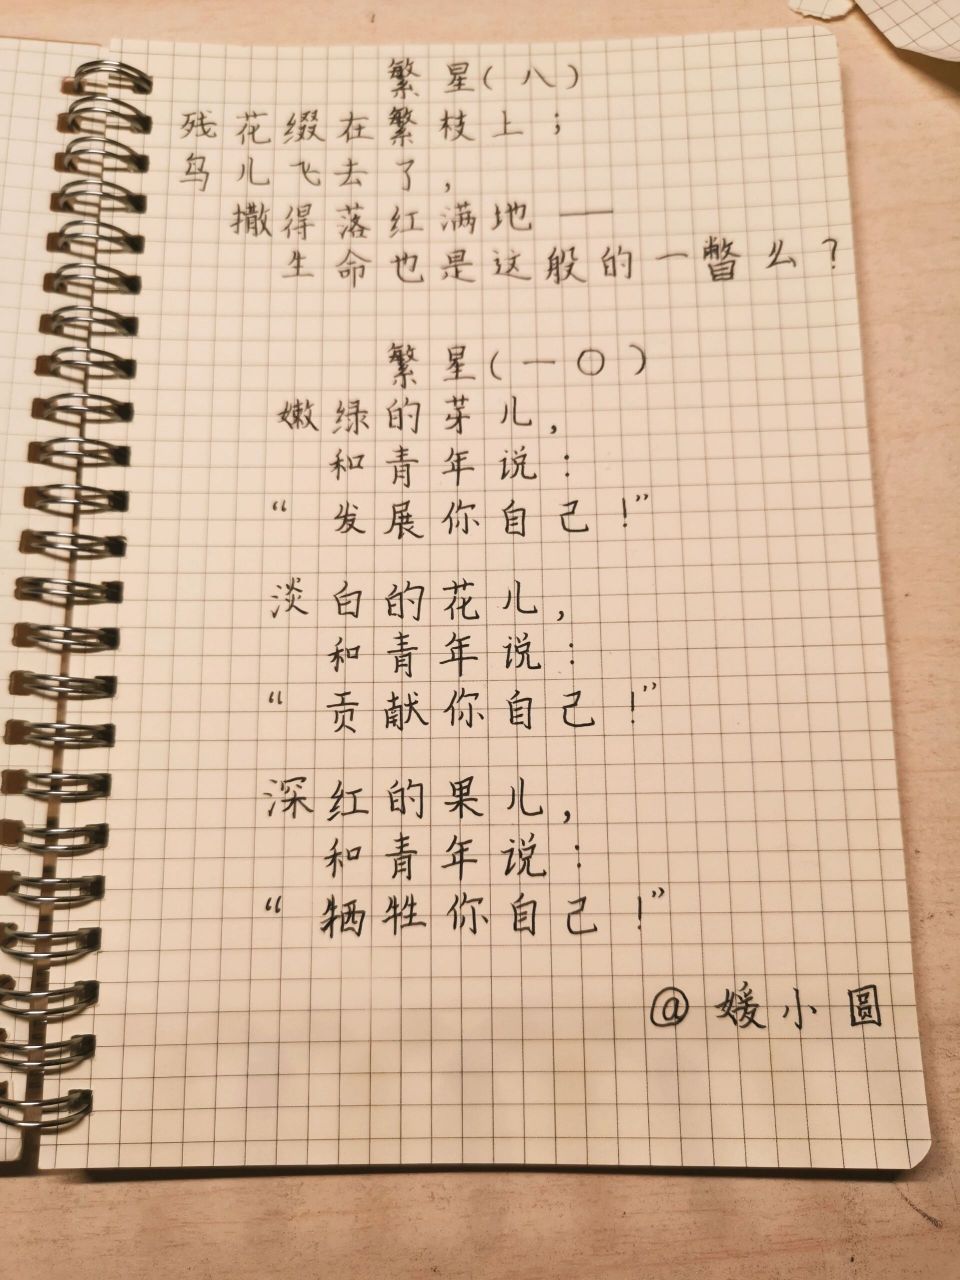 繁星(八)
残花缀在繁枝上;
鸟儿飞去了,
撒得落红满地——
生命也是这般的一瞥么?
繁星(一〇)
嫩绿的芽儿,
和青年说:
“发展你自己!”
淡白的花儿,
和青年说:
“贡献你自己!”
深红的果儿,
和青年说:
“牺牲你自己!”
@媛小圆